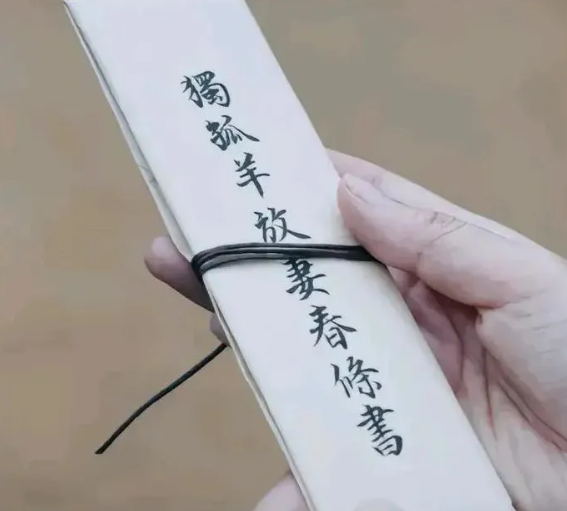 獨孤羊放妻春條書